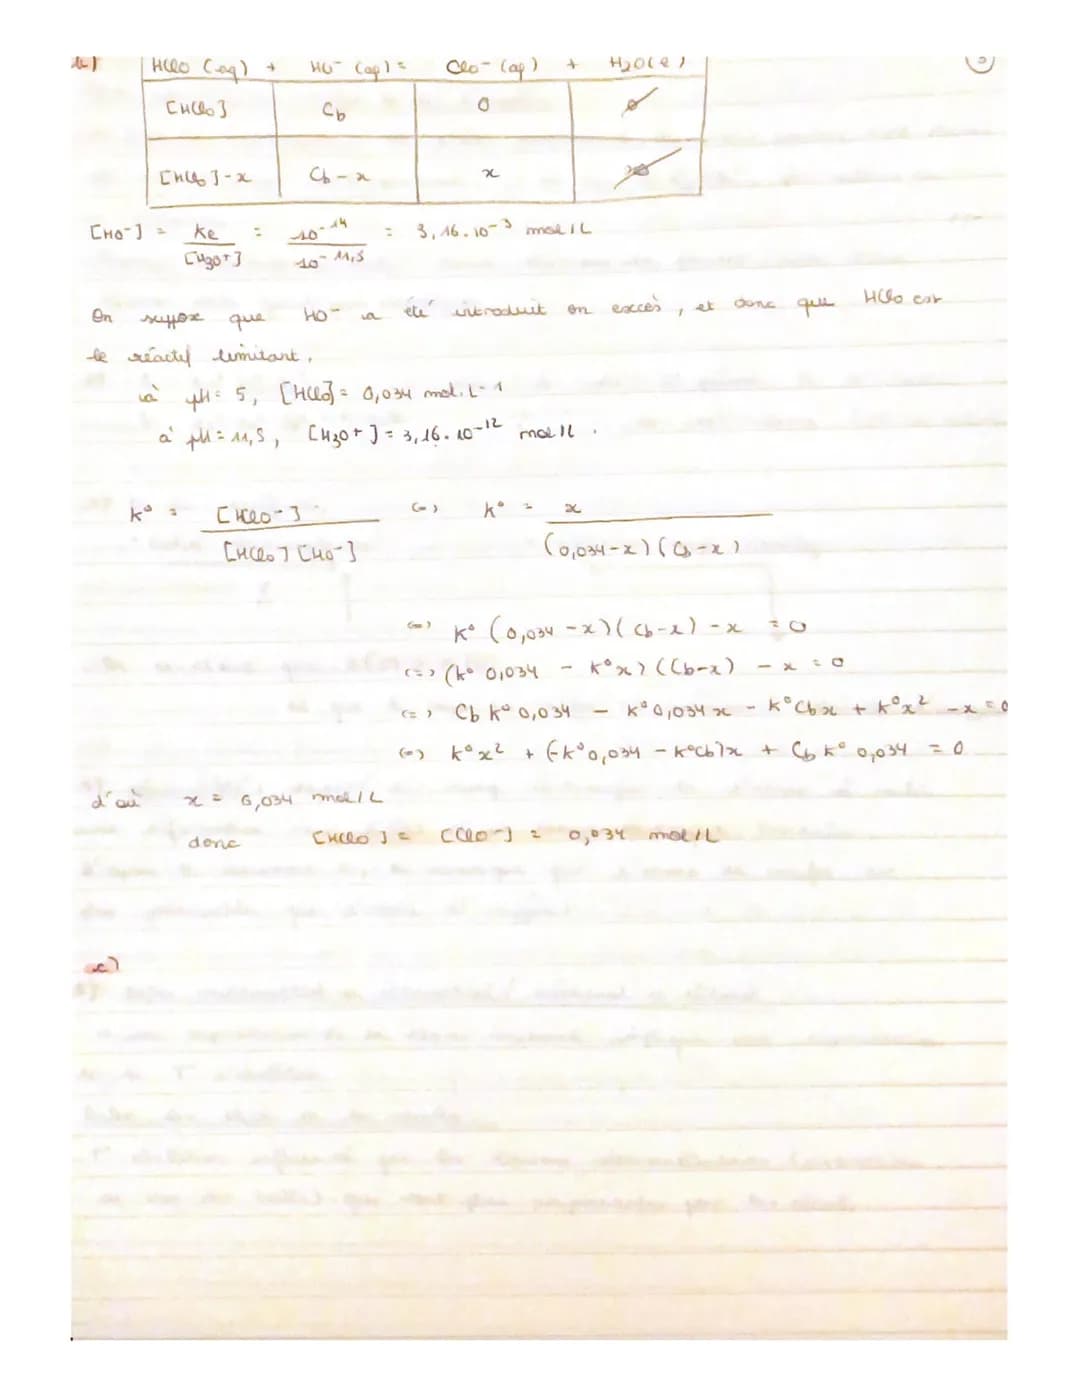 b)
HClO (aq) + HO- (aq) = ClO- (aq) + H2O(l)
[HClO] Cb 0 ø
[HClO]-x Cb-x x
[HO-] = Ke / [H3O+] = 10-14 / 10-11,5 = 3,16.10-3 mol/L
On suppose que HO- a été introduit en excès, et donc que HClO est
le réactif limitant.
à pH = 5, [HClO] = 0,034 mol.L-1
à pH = 11,5, [H3O+] = 3,16.10-12 mol/L.
K° = [HClO-] / [HClO][HO-] (=) K° = x / (0,034-x)(Cb-x)
(=) K° (0,034-x)(Cb-x) - x = 0
(=) (K° 0,034 - K°x)(Cb-x) - x = 0
(=) Cb K° 0,034 - K°0,034x - K°Cbx + K°x² - x = 0
(=) K°x² + (-K°0,034 - K°Cb)x + Cb K° 0,034 = 0
d'où x = 0,034 mol/L
donc [HClO] = [ClO-] = 0,034 mol/L
c)